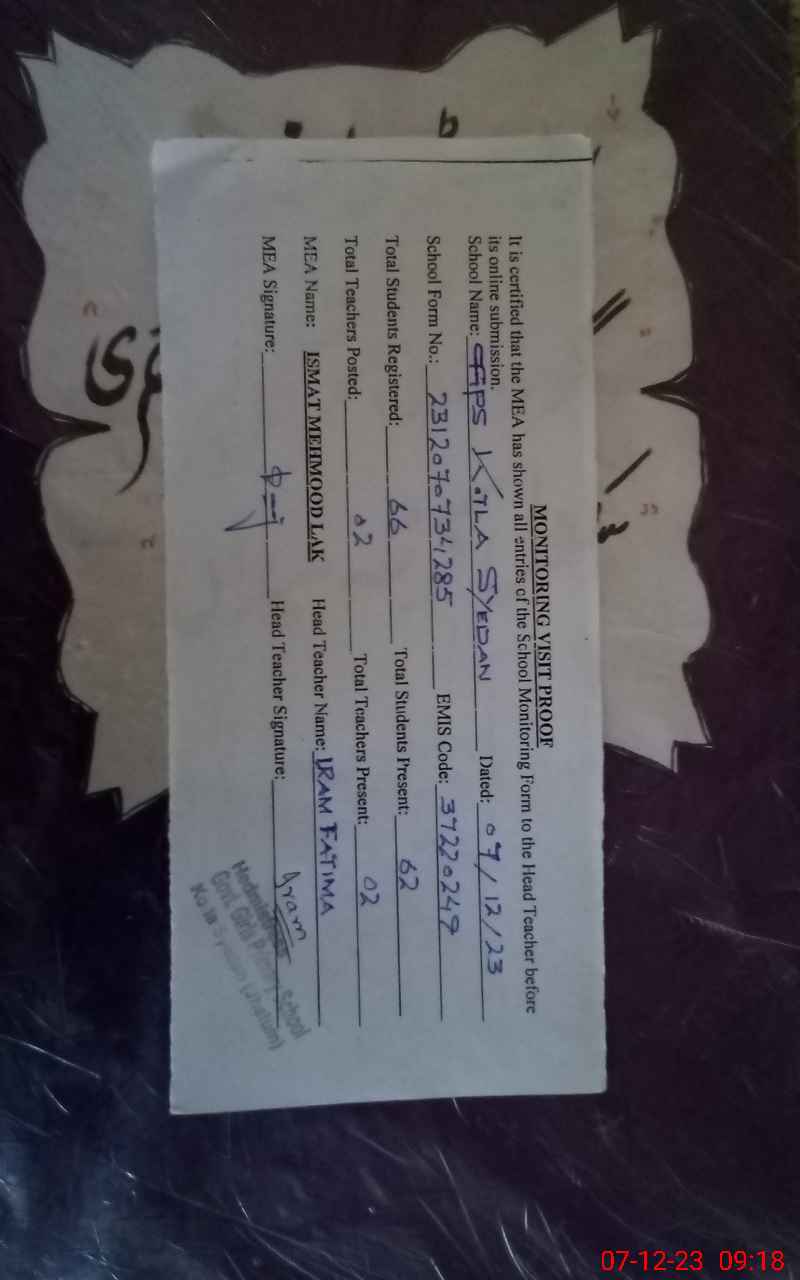 MONITORING VISIT PROOF
It is certified that the MEA has shown all entries of the School Monitoring Form to the Head Teacher before
its online submission.
School Name: GGPS KOTLA SYEDAN Dated: 07/12/23
School Form No.: 231207071734285 EMIS Code: 37220247
Total Students Registered: 66 Total Students Present: 62
Total Teachers Posted: 02 Total Teachers Present: 02
MEA Name: ISMAT MEHMOOD LAK Head Teacher Name: IRAM FATIMA
MEA Signature: Head Teacher Signature: Iram
Headmistress
Govt. Girls Primary School
07-12-23 09:18